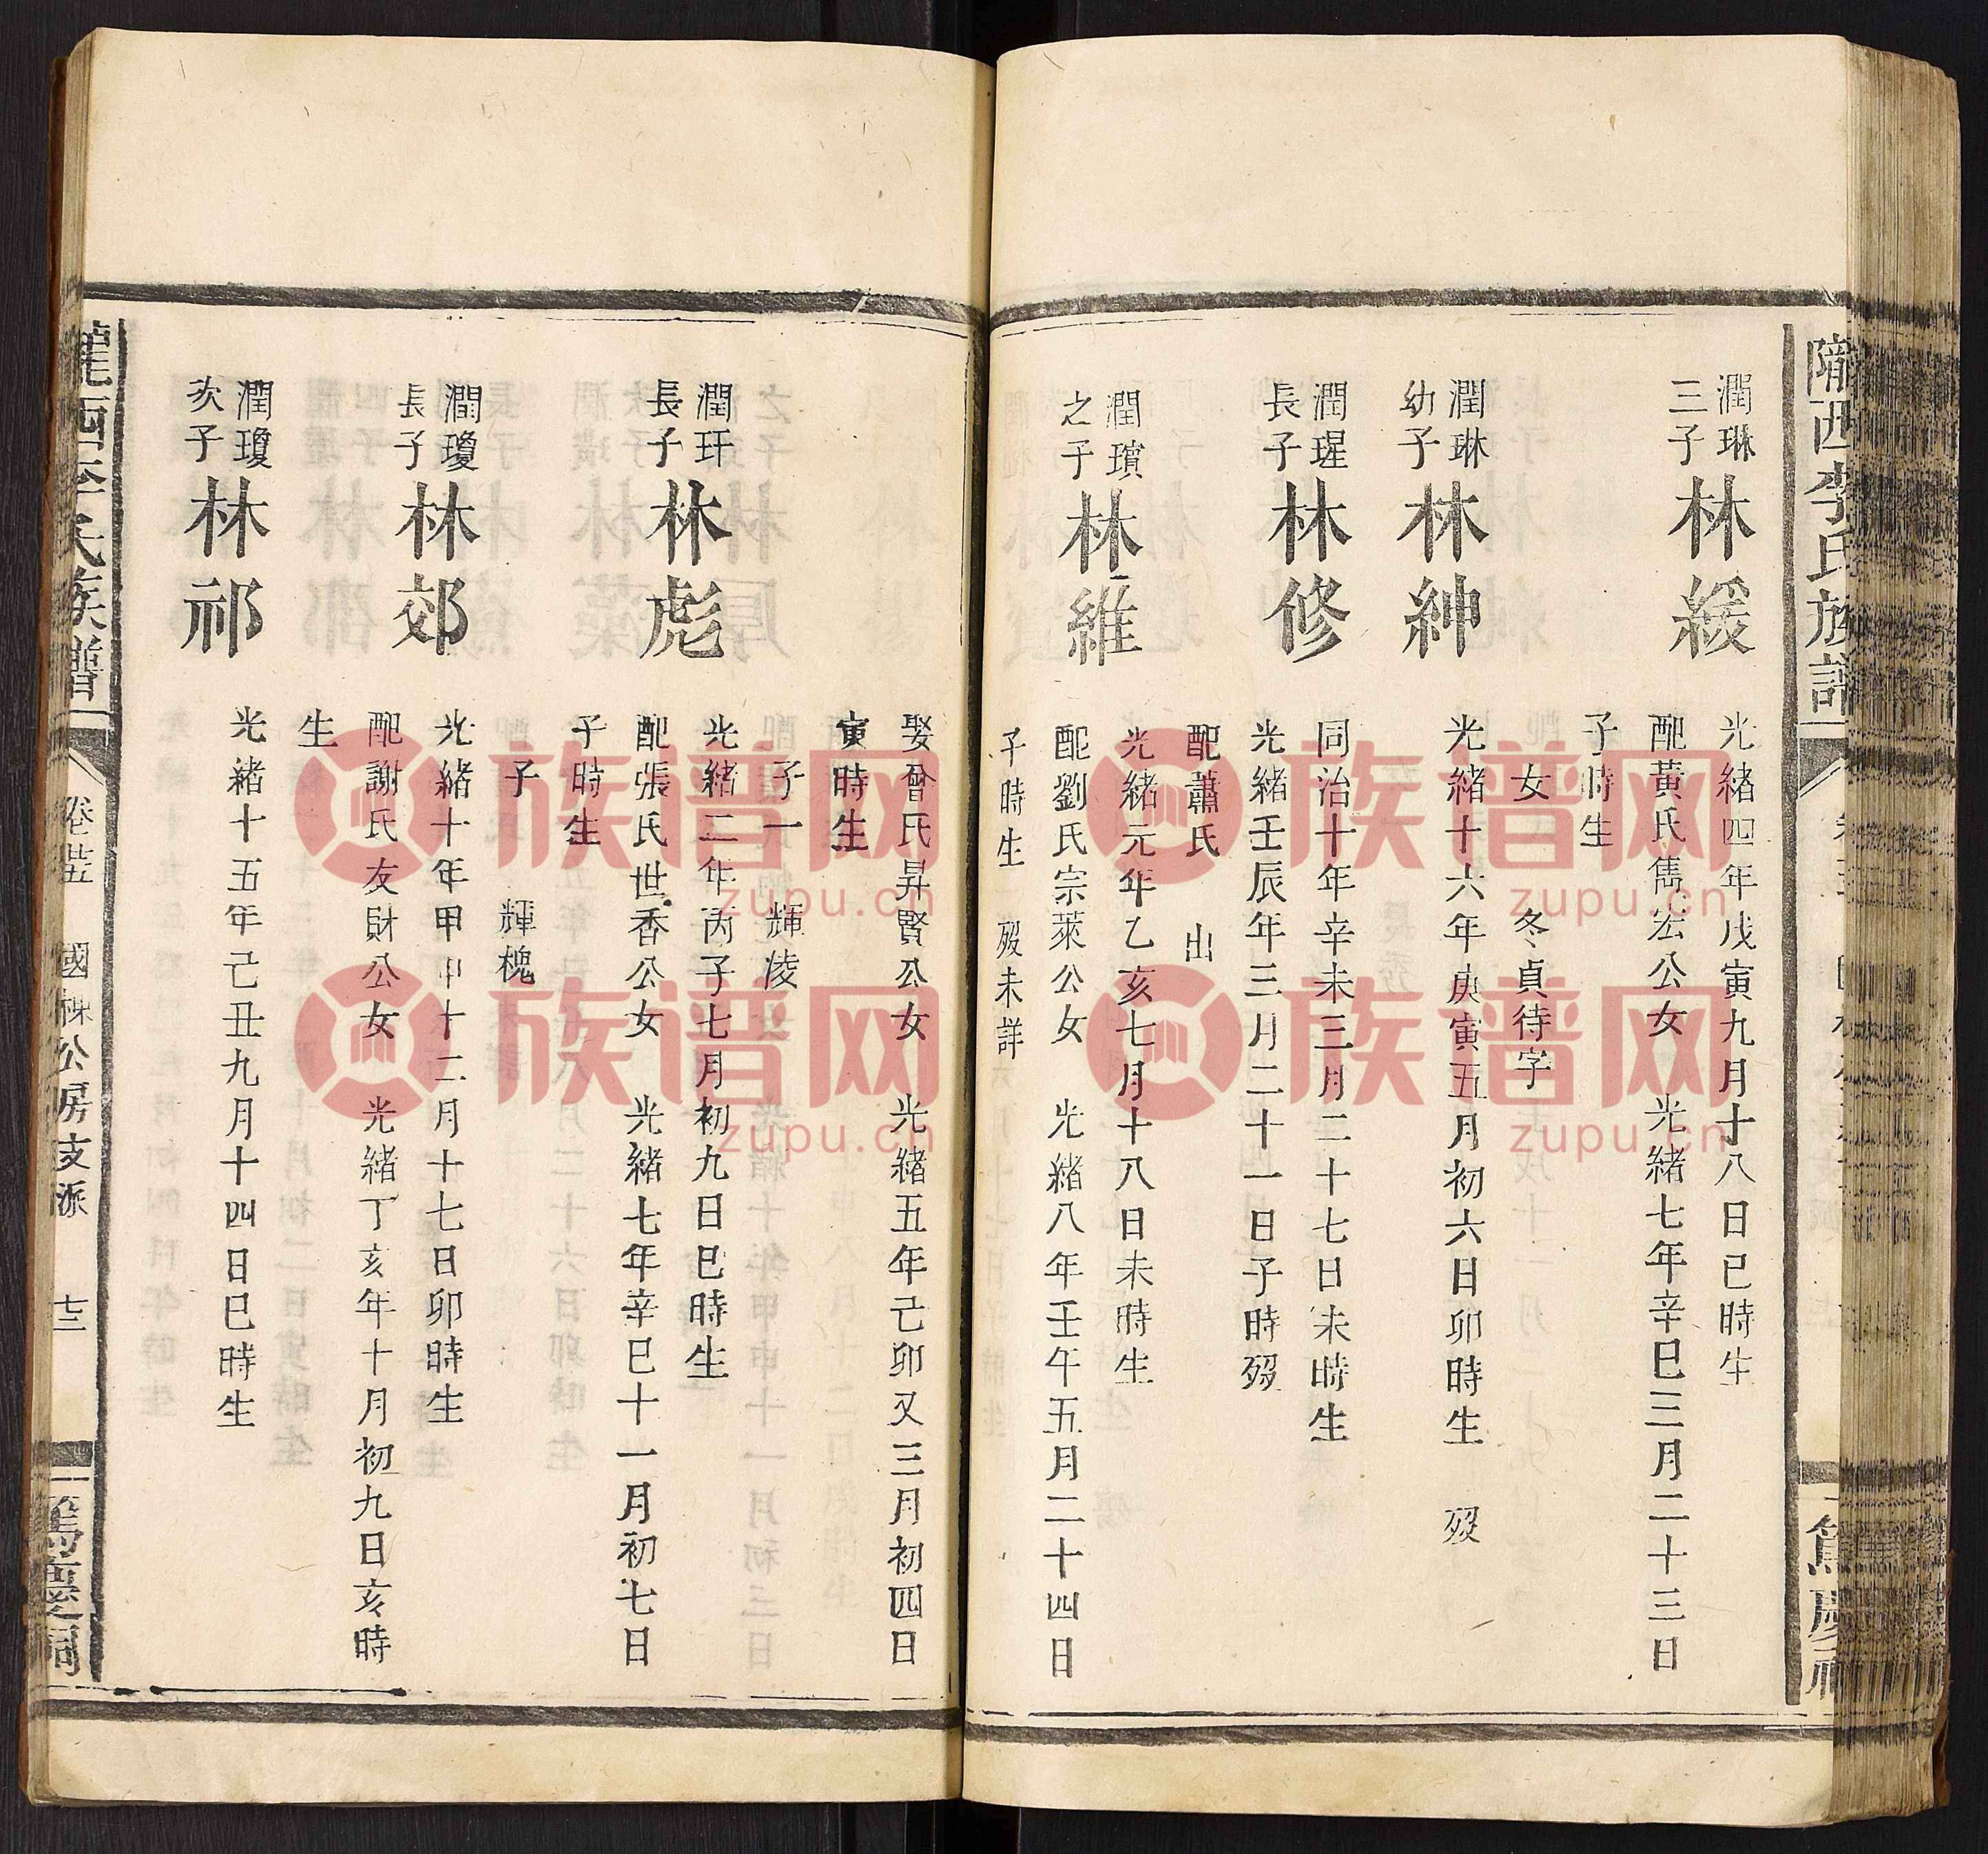 隴西李氏族譜
潤琳
三子
林緩
光緒四年戊寅九月十八日巳時生
配黃氏雋宏公女　光緒七年辛巳三月二十三日
子時生
女　冬貞待字
潤琳
幼子
林紳
光緒十六年庚寅五月初六日卯時生　歿
潤瑆
長子
林修
同治十年辛未三月二十七日未時生
光緒壬辰年三月二十一日子時歿
配蕭氏　出
潤璸
之子
林維
光緒元年乙亥七月十八日未時生
配劉氏宗萊公女　光緒八年壬午五月二十四日
子時生　歿未詳
娶會氏昇賢公女　光緒五年己卯又三月初四日
寅時生
子一　輝淩
潤玕
長子
林彪
光緒二年丙子七月初九日巳時生
配張氏世香公女　光緒七年辛巳十一月初七日
子時生
子　輝槐
潤瓊
長子
林郊
光緒十年甲申十二月十七日卯時生
配謝氏友財公女　光緒丁亥年十月初九日亥時
生
潤瓊
次子
林祁
光緒十五年己丑九月十四日巳時生
隴西李氏族譜
卷五　國棟公房支派　十三
篤慶祠
族谱网
zupu.cn
族谱网
zupu.cn
族谱网
zupu.cn
族谱网
zupu.cn